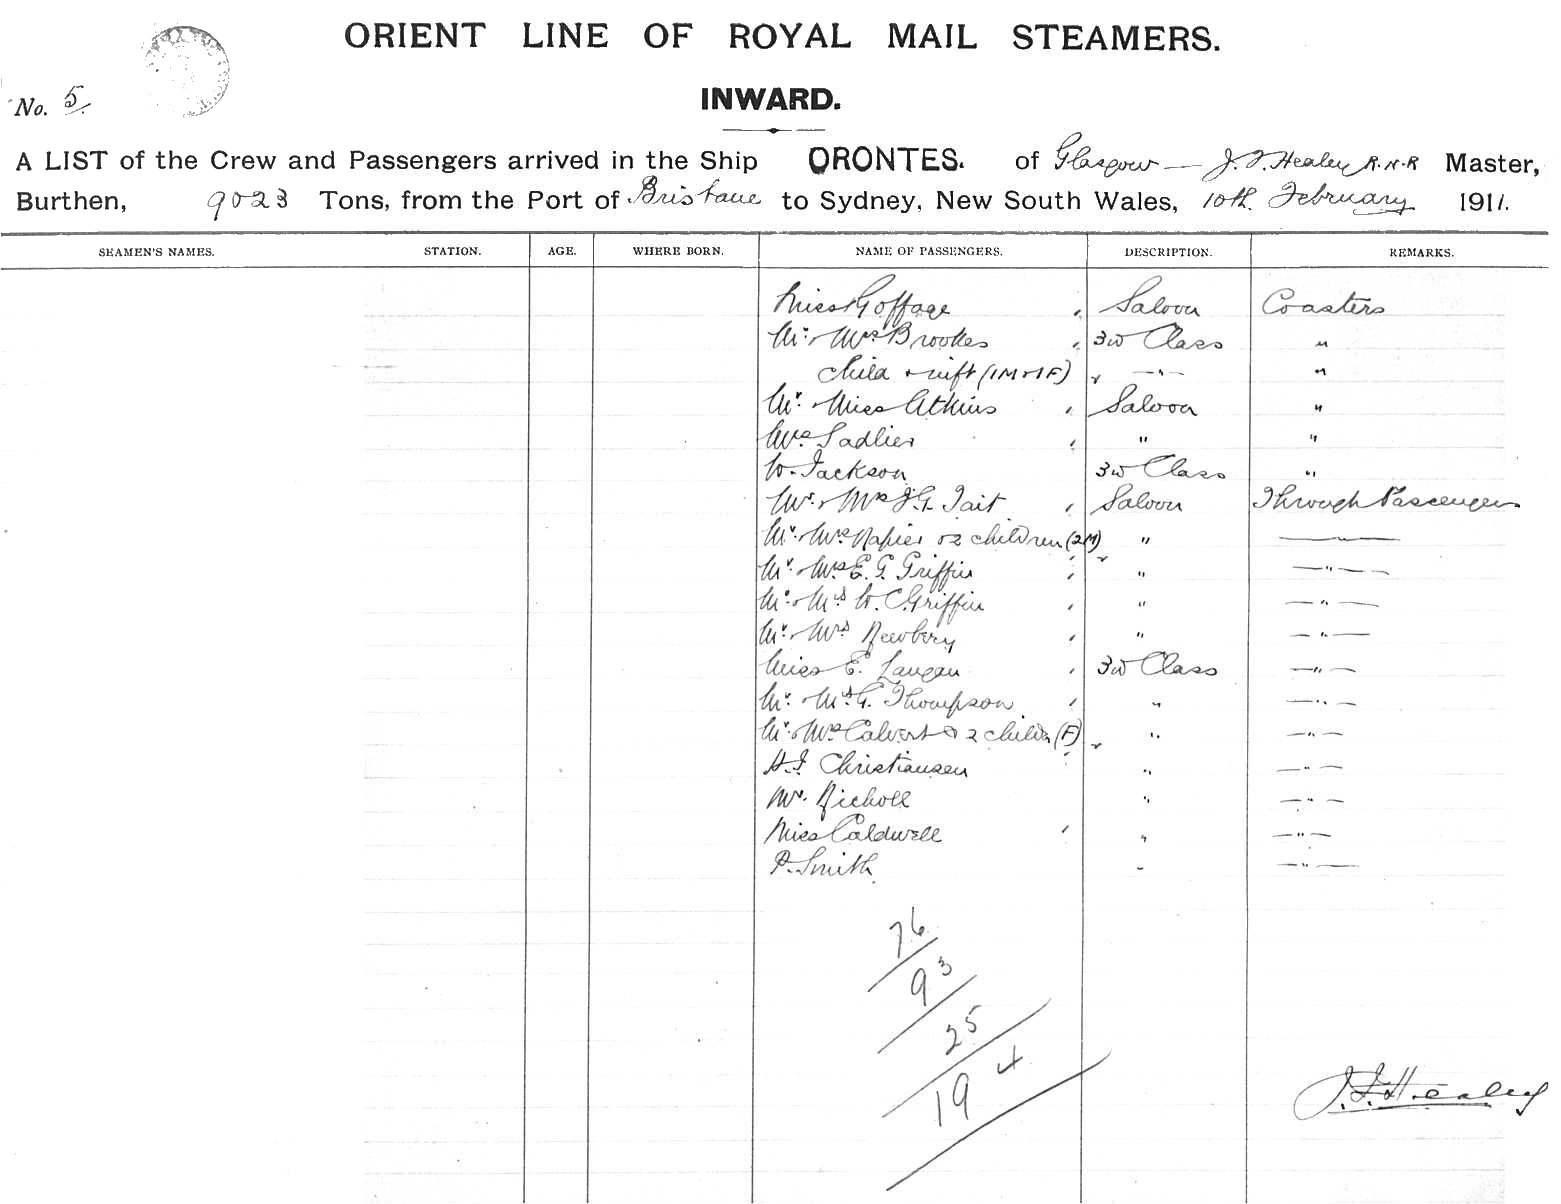 ORIENT LINE OF ROYAL MAIL STEAMERS.
No. 5.
INWARD.
A LIST of the Crew and Passengers arrived in the Ship ORONTES. of Glasgow — J. F. Healey R.N.R Master,
Burthen, 9023 Tons, from the Port of Brisbane to Sydney, New South Wales, 10th February 1911.
SEAMEN'S NAMES. STATION. AGE. WHERE BORN. NAME OF PASSENGERS. DESCRIPTION. REMARKS.
Miss Goffage Saloon Coasters
Mr. Mrs Brookes 3rd Class "
Child & inft (1M & 1F) —"— "
Mr. Miss Atkins Saloon "
Mrs Sadlier " "
W. Jackson 3rd Class "
Mr. & Mrs J.G. Tait Saloon Through Passengers
Mr. Mrs Napier & 2 children (2M) " —"—
Mr. Mrs E. G. Griffin " —"—
Mr. & Mrs W. C. Griffin " —"—
Mr. & Mrs Newbery " —"—
Miss E. 3rd Class —"—
Mr. Mrs G. Thompson " —"—
Mr. & Mrs Calvert & 2 childn (F) " —"—
H. J. Christiansen " —"—
Mr. Nicholl " —"—
Miss Caldwell " —"—
P. Smith " —"—
76
93
25
194
J. F. Healey